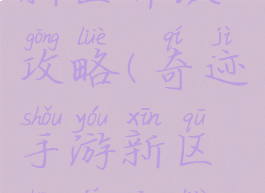 gōng lüè qí jì
攻略(奇迹
shǒu yóu xīn qū
手游新区